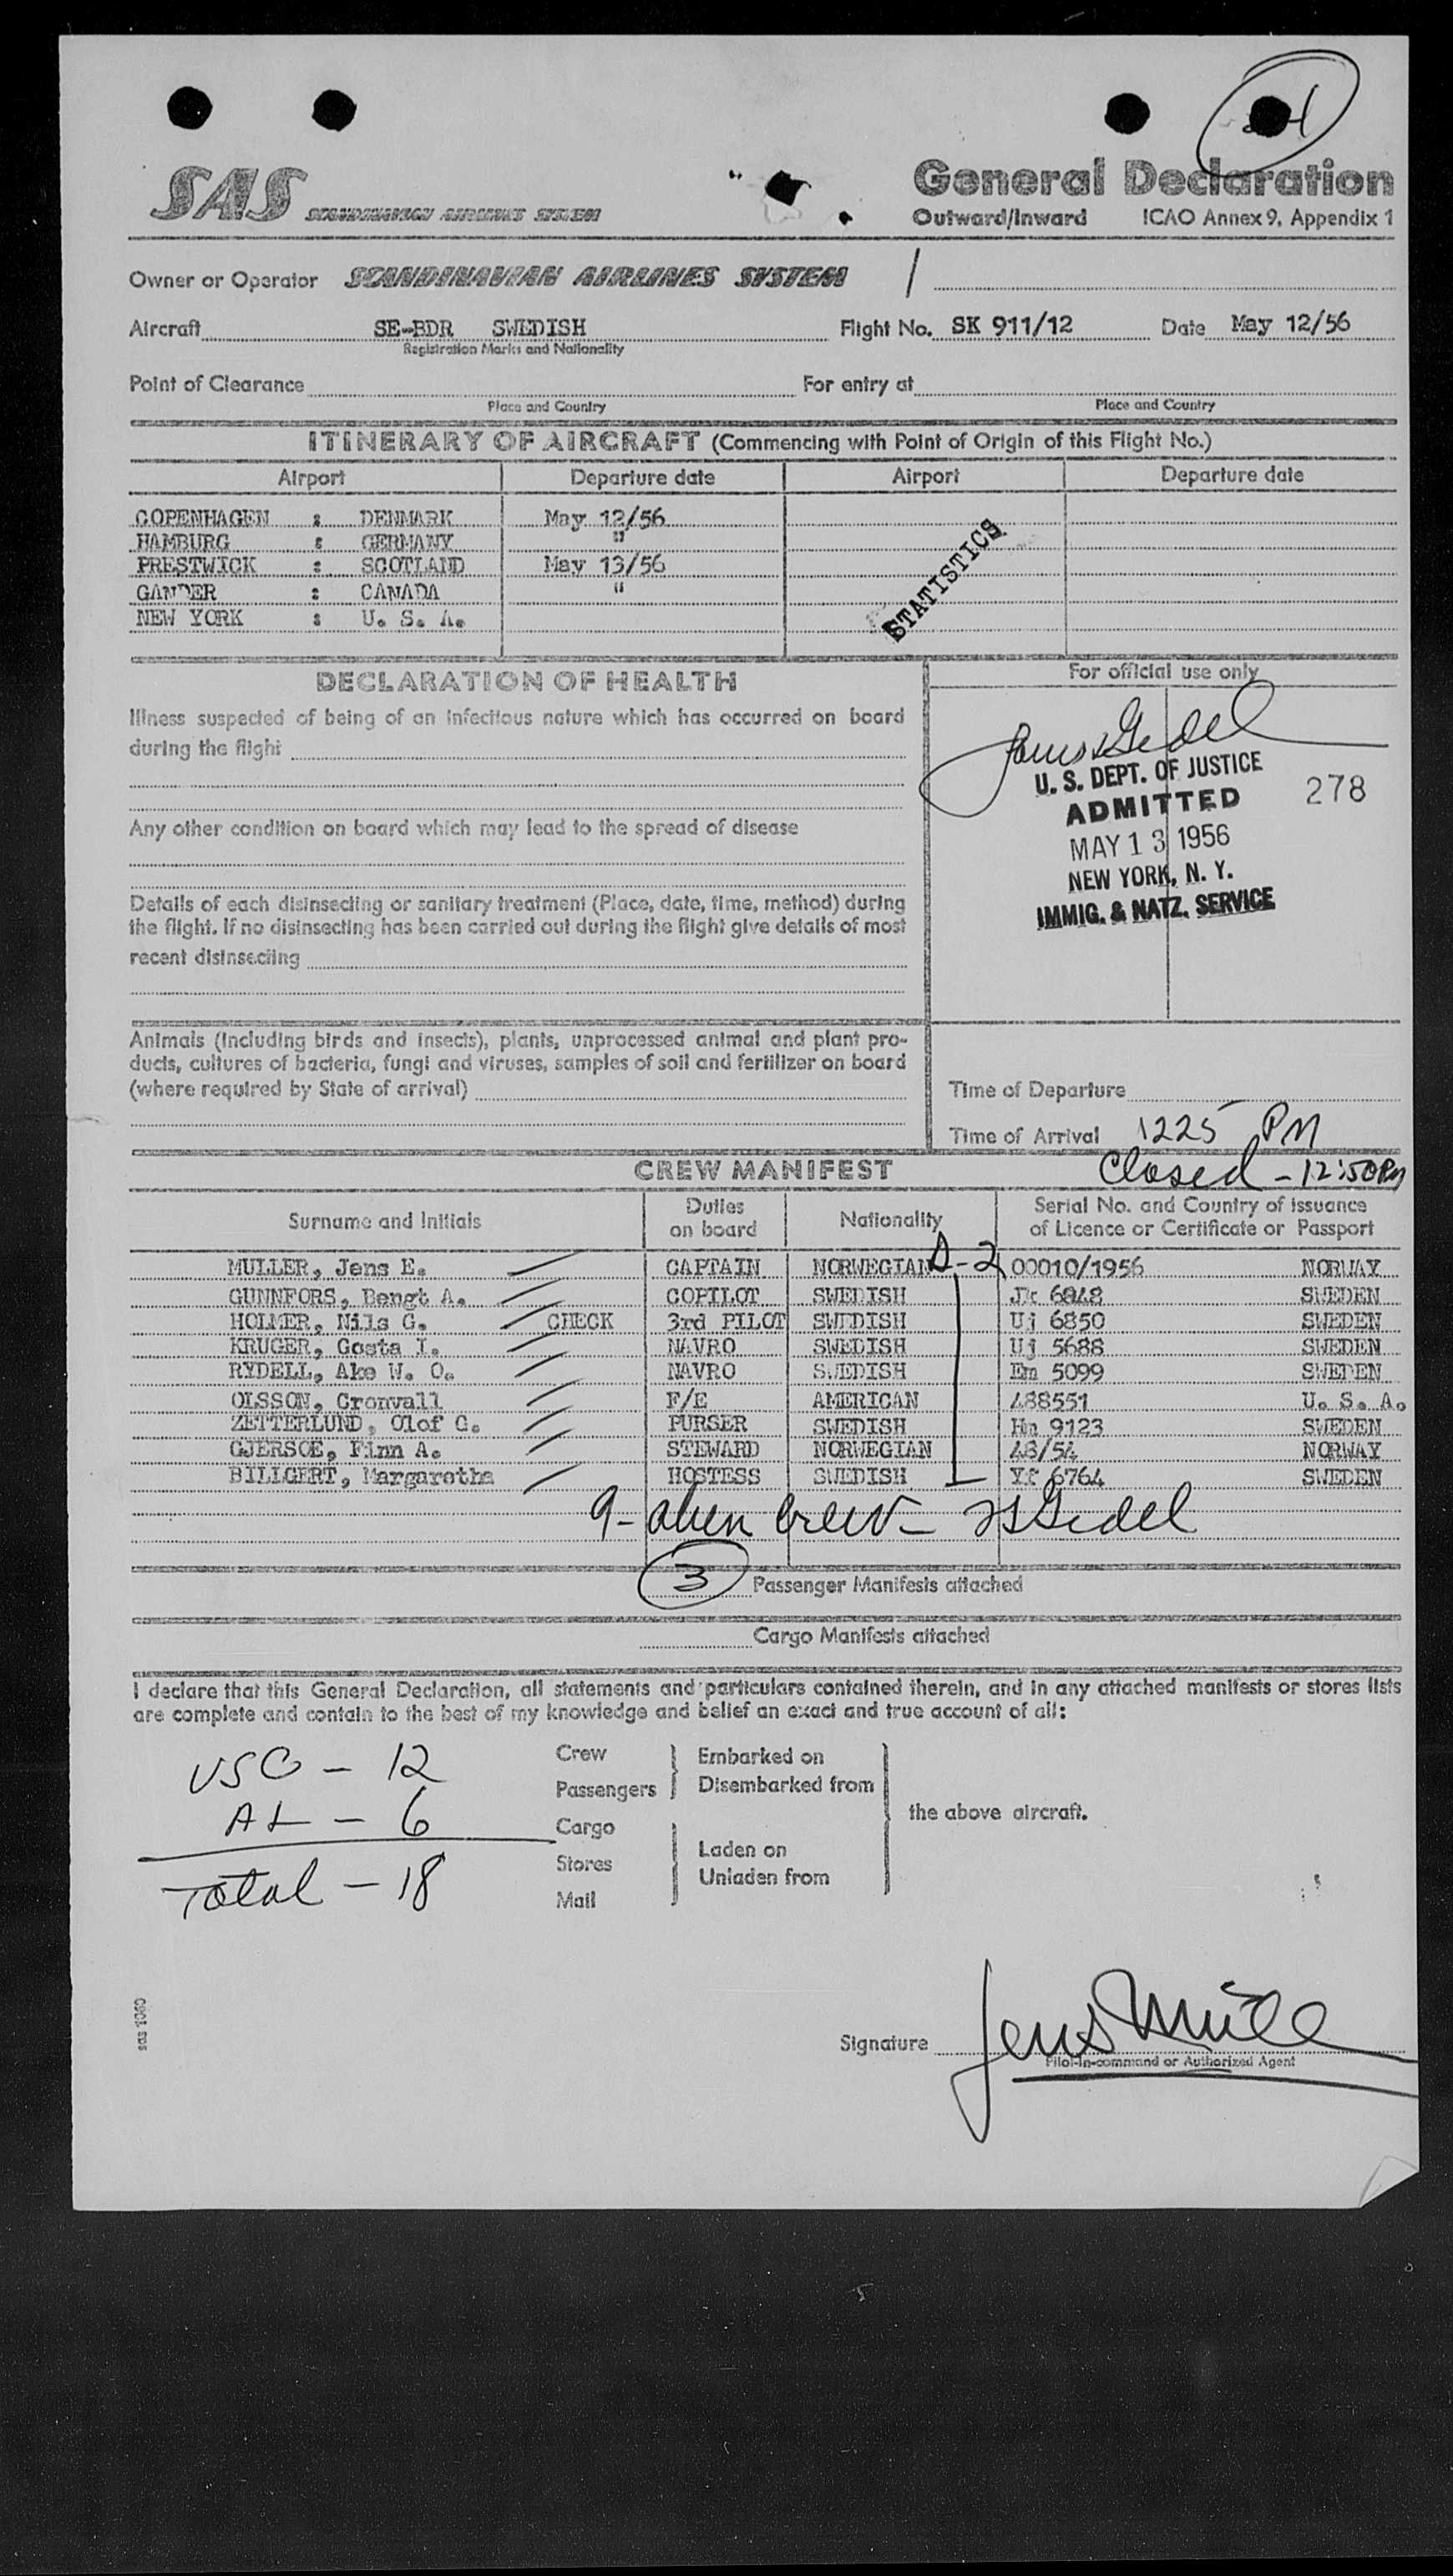 SAS SCANDINAVIAN AIRLINES SYSTEM
General Declaration
Outward/Inward ICAO Annex 9, Appendix 1
Owner or Operator SCANDINAVIAN AIRLINES SYSTEM
Aircraft SE-BDR SWEDISH Flight No. SK 911/12 Date May 12/56
Registration Marks and Nationality
Point of Clearance For entry at
Place and Country Place and Country
ITINERARY OF AIRCRAFT (Commencing with Point of Origin of this Flight No.)
Airport Departure date Airport Departure date
COPENHAGEN : DENMARK May 12/56
HAMBURG : GERMANY "
PRESTWICK : SCOTLAND May 13/56
GANDER : CANADA "
NEW YORK : U. S. A.
STATISTICS
DECLARATION OF HEALTH
Illness suspected of being of an infectious nature which has occurred on board
during the flight
Any other condition on board which may lead to the spread of disease
Details of each disinsecting or sanitary treatment (Place, date, time, method) during
the flight. If no disinsecting has been carried out during the flight give details of most
recent disinsecting
Animals (including birds and insects), plants, unprocessed animal and plant pro-
ducts, cultures of bacteria, fungi and viruses, samples of soil and fertilizer on board
(where required by State of arrival)
For official use only
U. S. DEPT. OF JUSTICE
ADMITTED 278
MAY 13 1956
NEW YORK, N. Y.
IMMIG. & NATZ. SERVICE
Time of Departure
Time of Arrival 1225 PM
Closed - 12:50 PM
CREW MANIFEST
Surname and Initials Duties on board Nationality Serial No. and Country of issuance of Licence or Certificate or Passport
D-2
MULLER, Jens E. CAPTAIN NORWEGIAN 00010/1956 NORWAY
GUNNFORS, Bengt A. COPILOT SWEDISH 6848 SWEDEN
HOLMER, Nils G. CHECK 3rd PILOT SWEDISH Uj 6850 SWEDEN
KRUGER, Gosta I. NAVRO SWEDISH Uj 5688 SWEDEN
RYDELL, Ake W. O. NAVRO SWEDISH Em 5099 SWEDEN
OLSSON, Cronvall F/E AMERICAN 488551 U. S. A.
ZETTERLUND, Olof G. PURSER SWEDISH Hn 9123 SWEDEN
GJERSOE, Finn A. STEWARD NORWEGIAN 48/54 NORWAY
BILLGERT, Margaretha HOSTESS SWEDISH 6764 SWEDEN
9 - alien crew -
3 Passenger Manifests attached
Cargo Manifests attached
I declare that this General Declaration, all statements and particulars contained therein, and in any attached manifests or stores lists
are complete and contain to the best of my knowledge and belief an exact and true account of all:
USC - 12
AL - 6
Total - 18
Crew
Passengers
Cargo
Stores
Mail
Embarked on
Disembarked from
Laden on
Unladen from
the above aircraft.
sas 1060
Signature Jens Müller
Pilot-in-command or Authorized Agent